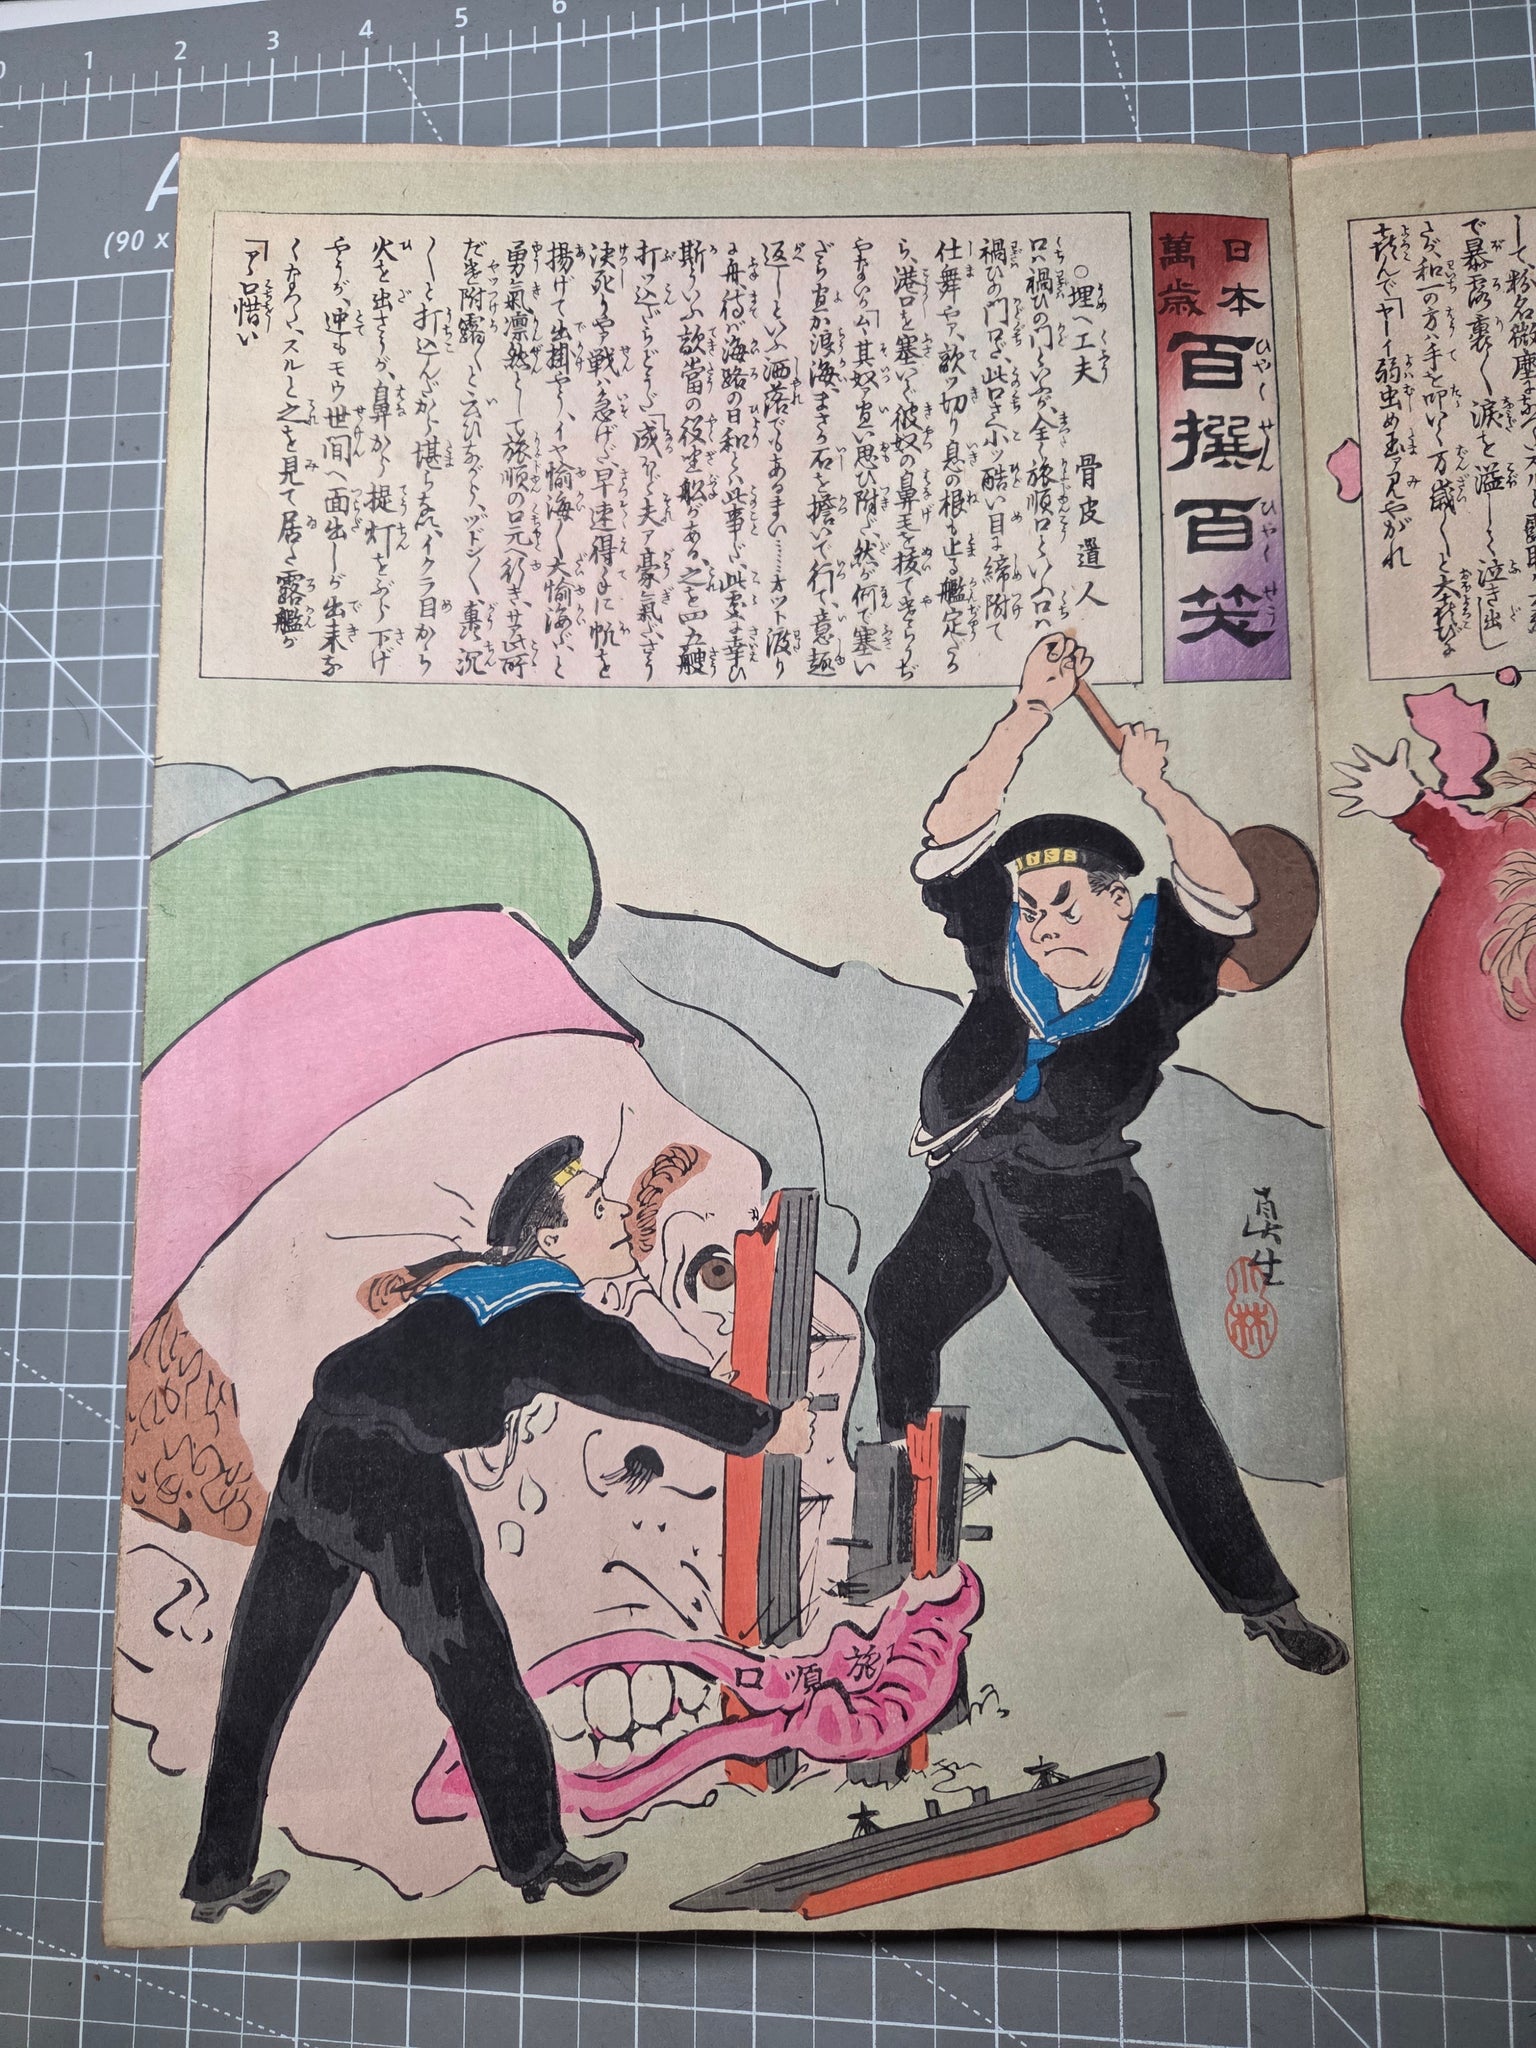 日本
萬歳
百撰百笑
ひやくせんひやくせう
○埋め工夫 骨皮道人
口ハ禍ひの門といふが、全く旅順口といふ入口ハ
禍ひの門口だ、此口さへ小ッ酷い目に締附て
仕舞やア、敵ッ切り息の根も止る艦定だから
港口を塞いで彼奴の鼻毛を抜て
其奴ア宜い思ひ附だ、然が何で塞い
海、まさか石を擔いで行て、意趣
返しといふ洒落でもあるまい……オット渡り
に舟、待バ海路の日和とハ此事だ、此處に幸ひ
斯ういふ敵當の役坐船がある、之を四五艘
打ッ込だらどうだ「成ほど夫ア豪氣だ、さう
決死りやア戦ハ急げだ早速得手に帆を
揚げて出掛やう、イヤ愉海〱大愉海だ、と
勇氣凛然として旅順の口元へ行き、サア此所
だ附露〱と云ひながら、ヅドン〱
〱と打込んだから堪らない、イクラ目から
火を出さうが、鼻から提灯をぶら下げ
やうが、迚もモウ世間へ面出しが出来な
くなつた、スルと之を見て居た露艦が
「アヽ口惜い
旅順口
真生
小林
して、粉名微塵
で暴露裏〱、涙を溢して泣き出し
たが、和一の方ハ手を叩いて万歳〱と大喜び
「ヤーイ弱虫め玉ア見やがれ
0 1 2 3 4 5 6
A
(90 x